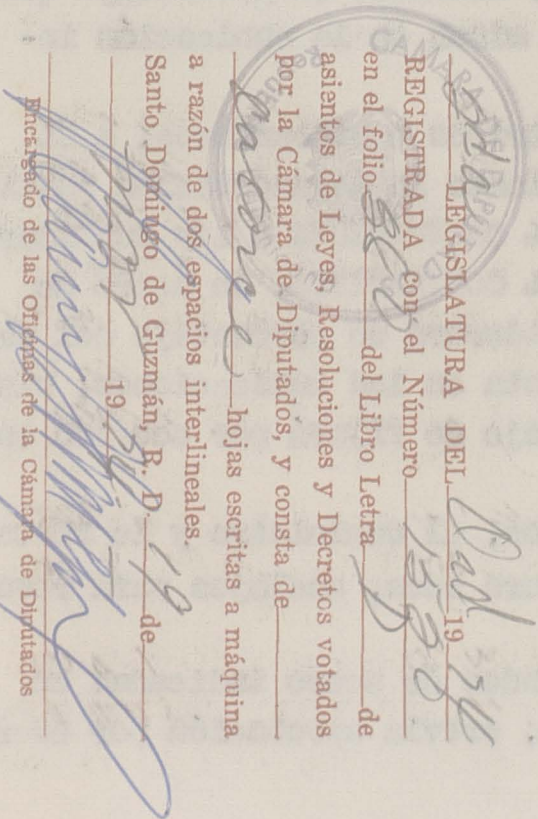 LEGISLATURA DEL Ord 1934
REGISTRADA con el Número 1538
en el folio del Libro Letra D de
asientos de Leyes, Resoluciones y Decretos votados
por la Cámara de Diputados, y consta de
catorce hojas escritas a máquina
a razón de dos espacios interlineales.
Santo Domingo de Guzmán, R. D. 19 de
1934
Encargado de las Oficinas de la Cámara de Diputados
CAMARA DE DIPUTADOS